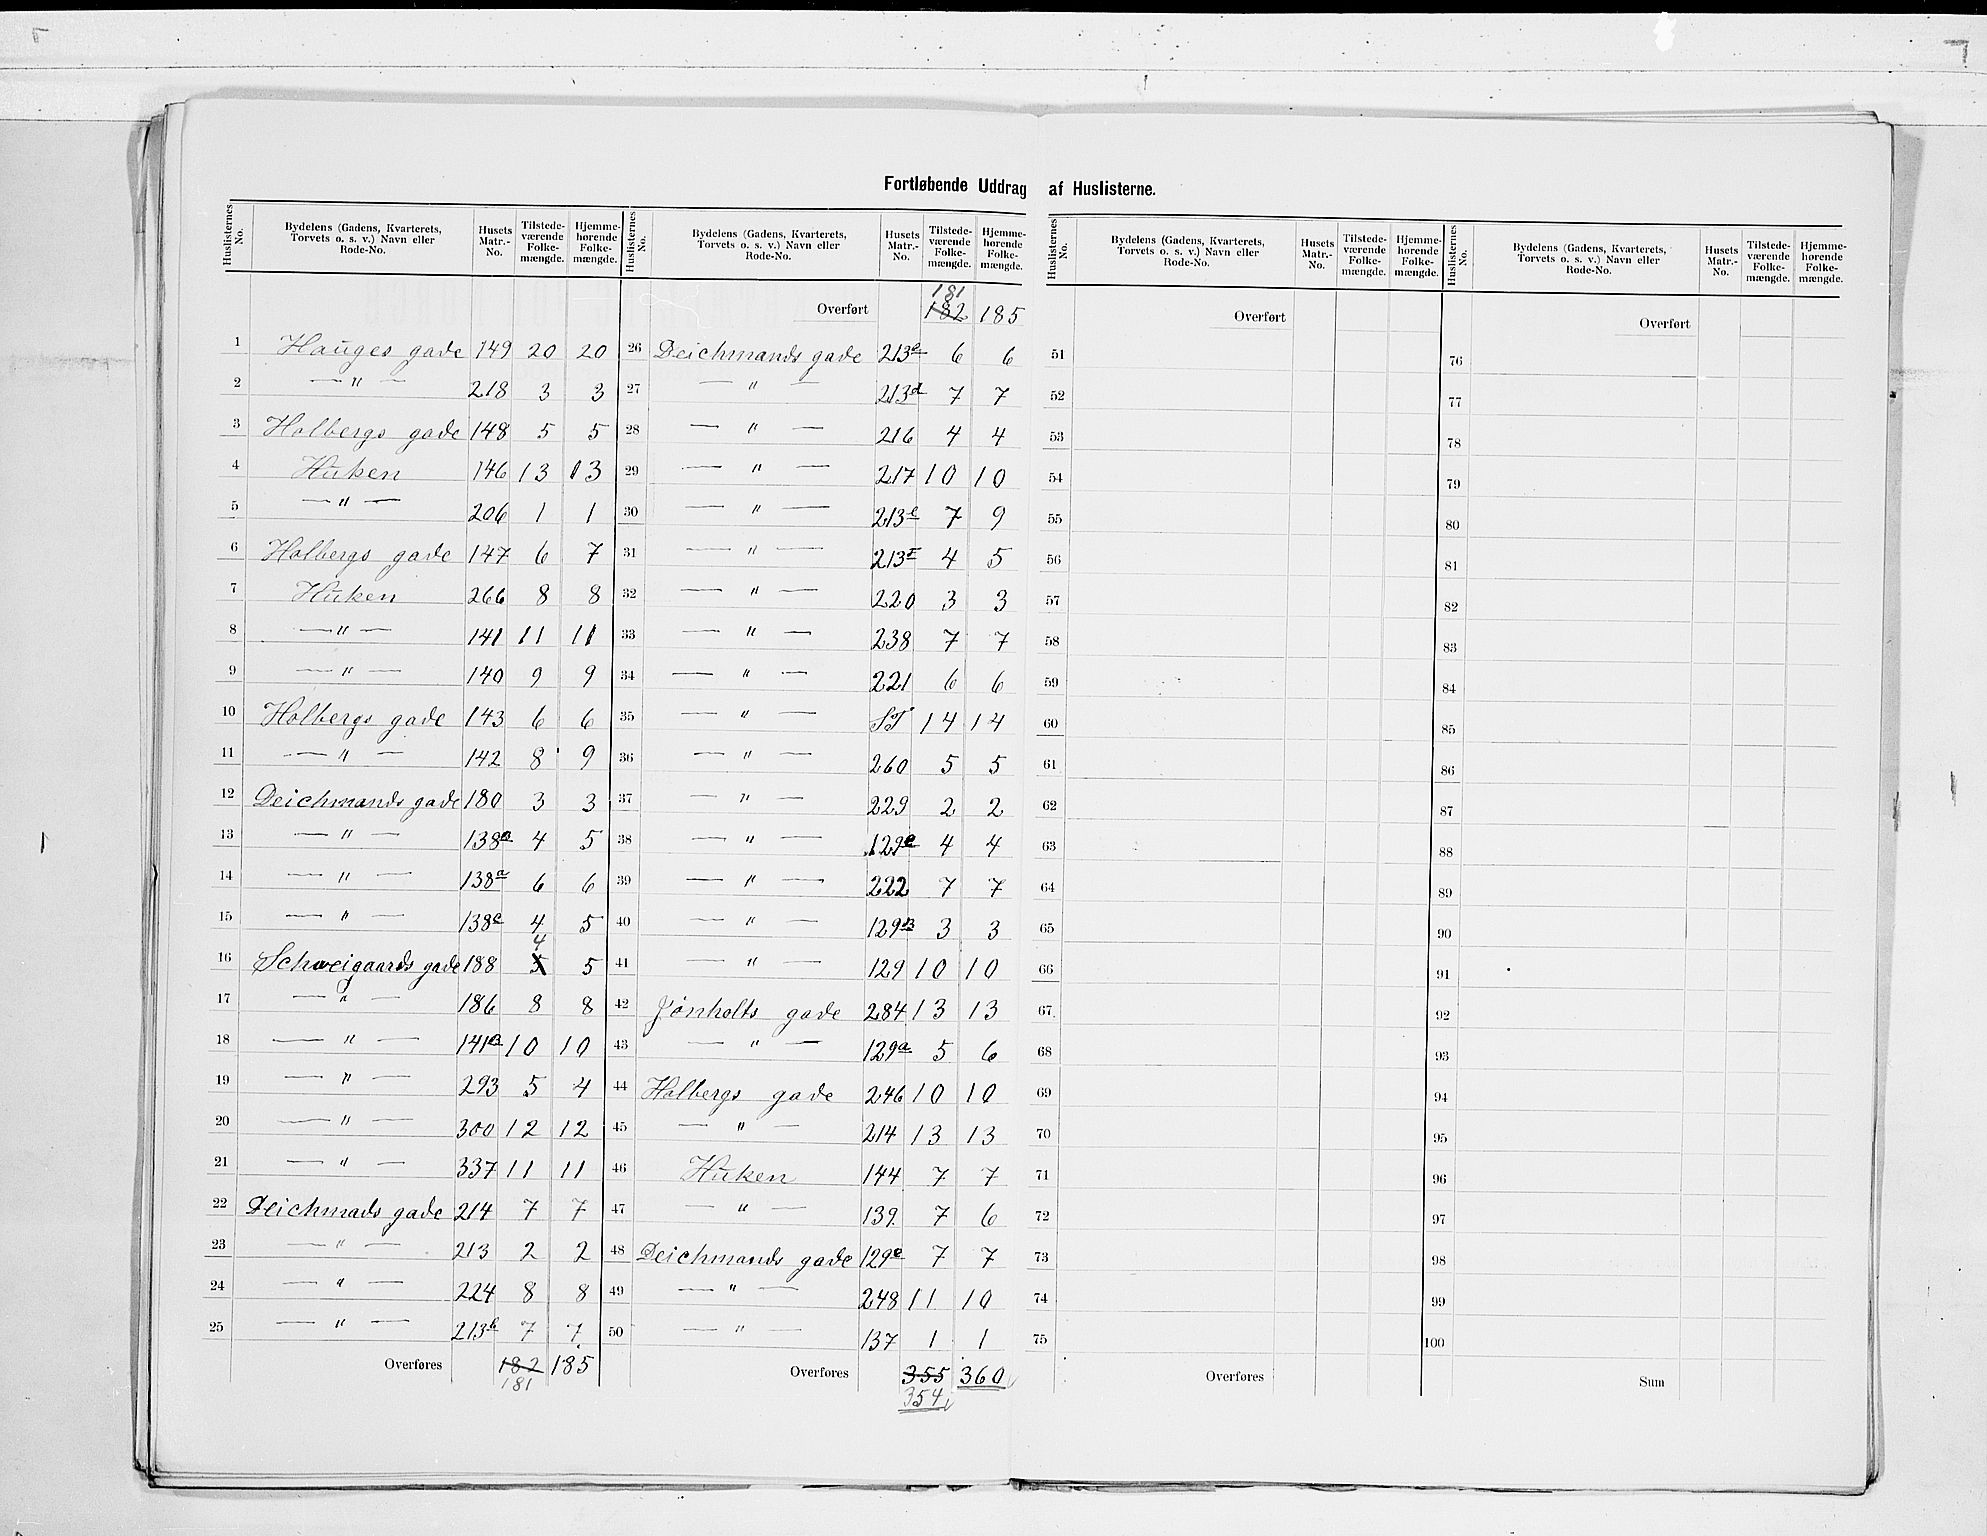 Fortløbende Uddrag af Huslisterne.
Huslisternes No. | Bydelens (Gadens, Kvarterets, Torvets o. s. v.) Navn eller Rode-No. | Husets Matr.-No. | Tilstedeværende Folkemængde. | Hjemmehørende Folkemængde.
1 Hauges gade 149 20 20
2 — " — 218 3 3
3 Holbergs gade 148 5 5
4 Huken 146 13 13
5 — " — 206 1 1
6 Holbergs gade 147 6 7
7 Huken 266 8 8
8 — " — 141 11 11
9 — " — 140 9 9
10 Holbergs gade 143 6 6
11 — " — 142 8 9
12 Deichmands gade 180 3 3
13 — " — 138a 4 5
14 — " — 138a 6 6
15 — " — 138c 4 5
16 Schweigaards gade 188 5 4 5
17 — " — 186 8 8
18 — " — 141a 10 10
19 — " — 293 5 4
20 — " — 300 12 12
21 — " — 337 11 11
22 Deichmads gade 214 7 7
23 — " — 213 2 2
24 — " — 224 8 8
25 — " — 213b 7 7
Overføres 182 185
181
Huslisternes No. | Bydelens (Gadens, Kvarterets, Torvets o. s. v.) Navn eller Rode-No. | Husets Matr.-No. | Tilstedeværende Folkemængde. | Hjemmehørende Folkemængde.
181
Overført 182 185
26 Deichmands gade 213c 6 6
27 — " — 213d 7 7
28 — " — 216 4 4
29 — " — 217 10 10
30 — " — 213e 7 9
31 — " — 213F 4 5
32 — " — 220 3 3
33 — " — 238 7 7
34 — " — 221 6 6
35 — " — ST 14 14
36 — " — 260 5 5
37 — " — 229 2 2
38 — " — 129c 4 4
39 — " — 222 7 7
40 — " — 129B 3 3
41 — " — 129 10 10
42 Jønholts gade 284 13 13
43 — " — 129a 5 6
44 Holbergs gade 246 10 10
45 — " — 214 13 13
46 Huken 144 7 7
47 — " — 139. 7 6
48 Deichmands gade 129e 7 7
49 — " — 248 11 10
50 — " — 137 1 1
Overføres 355 360
354
Huslisternes No. | Bydelens (Gadens, Kvarterets, Torvets o. s. v.) Navn eller Rode-No. | Husets Matr.-No. | Tilstedeværende Folkemængde. | Hjemmehørende Folkemængde.
Overført
51
52
53
54
55
56
57
58
59
60
61
62
63
64
65
66
67
68
69
70
71
72
73
74
75
Overføres
Huslisternes No. | Bydelens (Gadens, Kvarterets, Torvets o. s. v.) Navn eller Rode-No. | Husets Matr.-No. | Tilstedeværende Folkemængde. | Hjemmehørende Folkemængde.
Overført
76
77
78
79
80
81
82
83
84
85
86
87
88
89
90
91
92
93
94
95
96
97
98
99
100
Sum